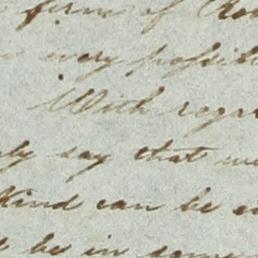 firm of
very possib
With regar
ly say that we
Kind can be
be in some